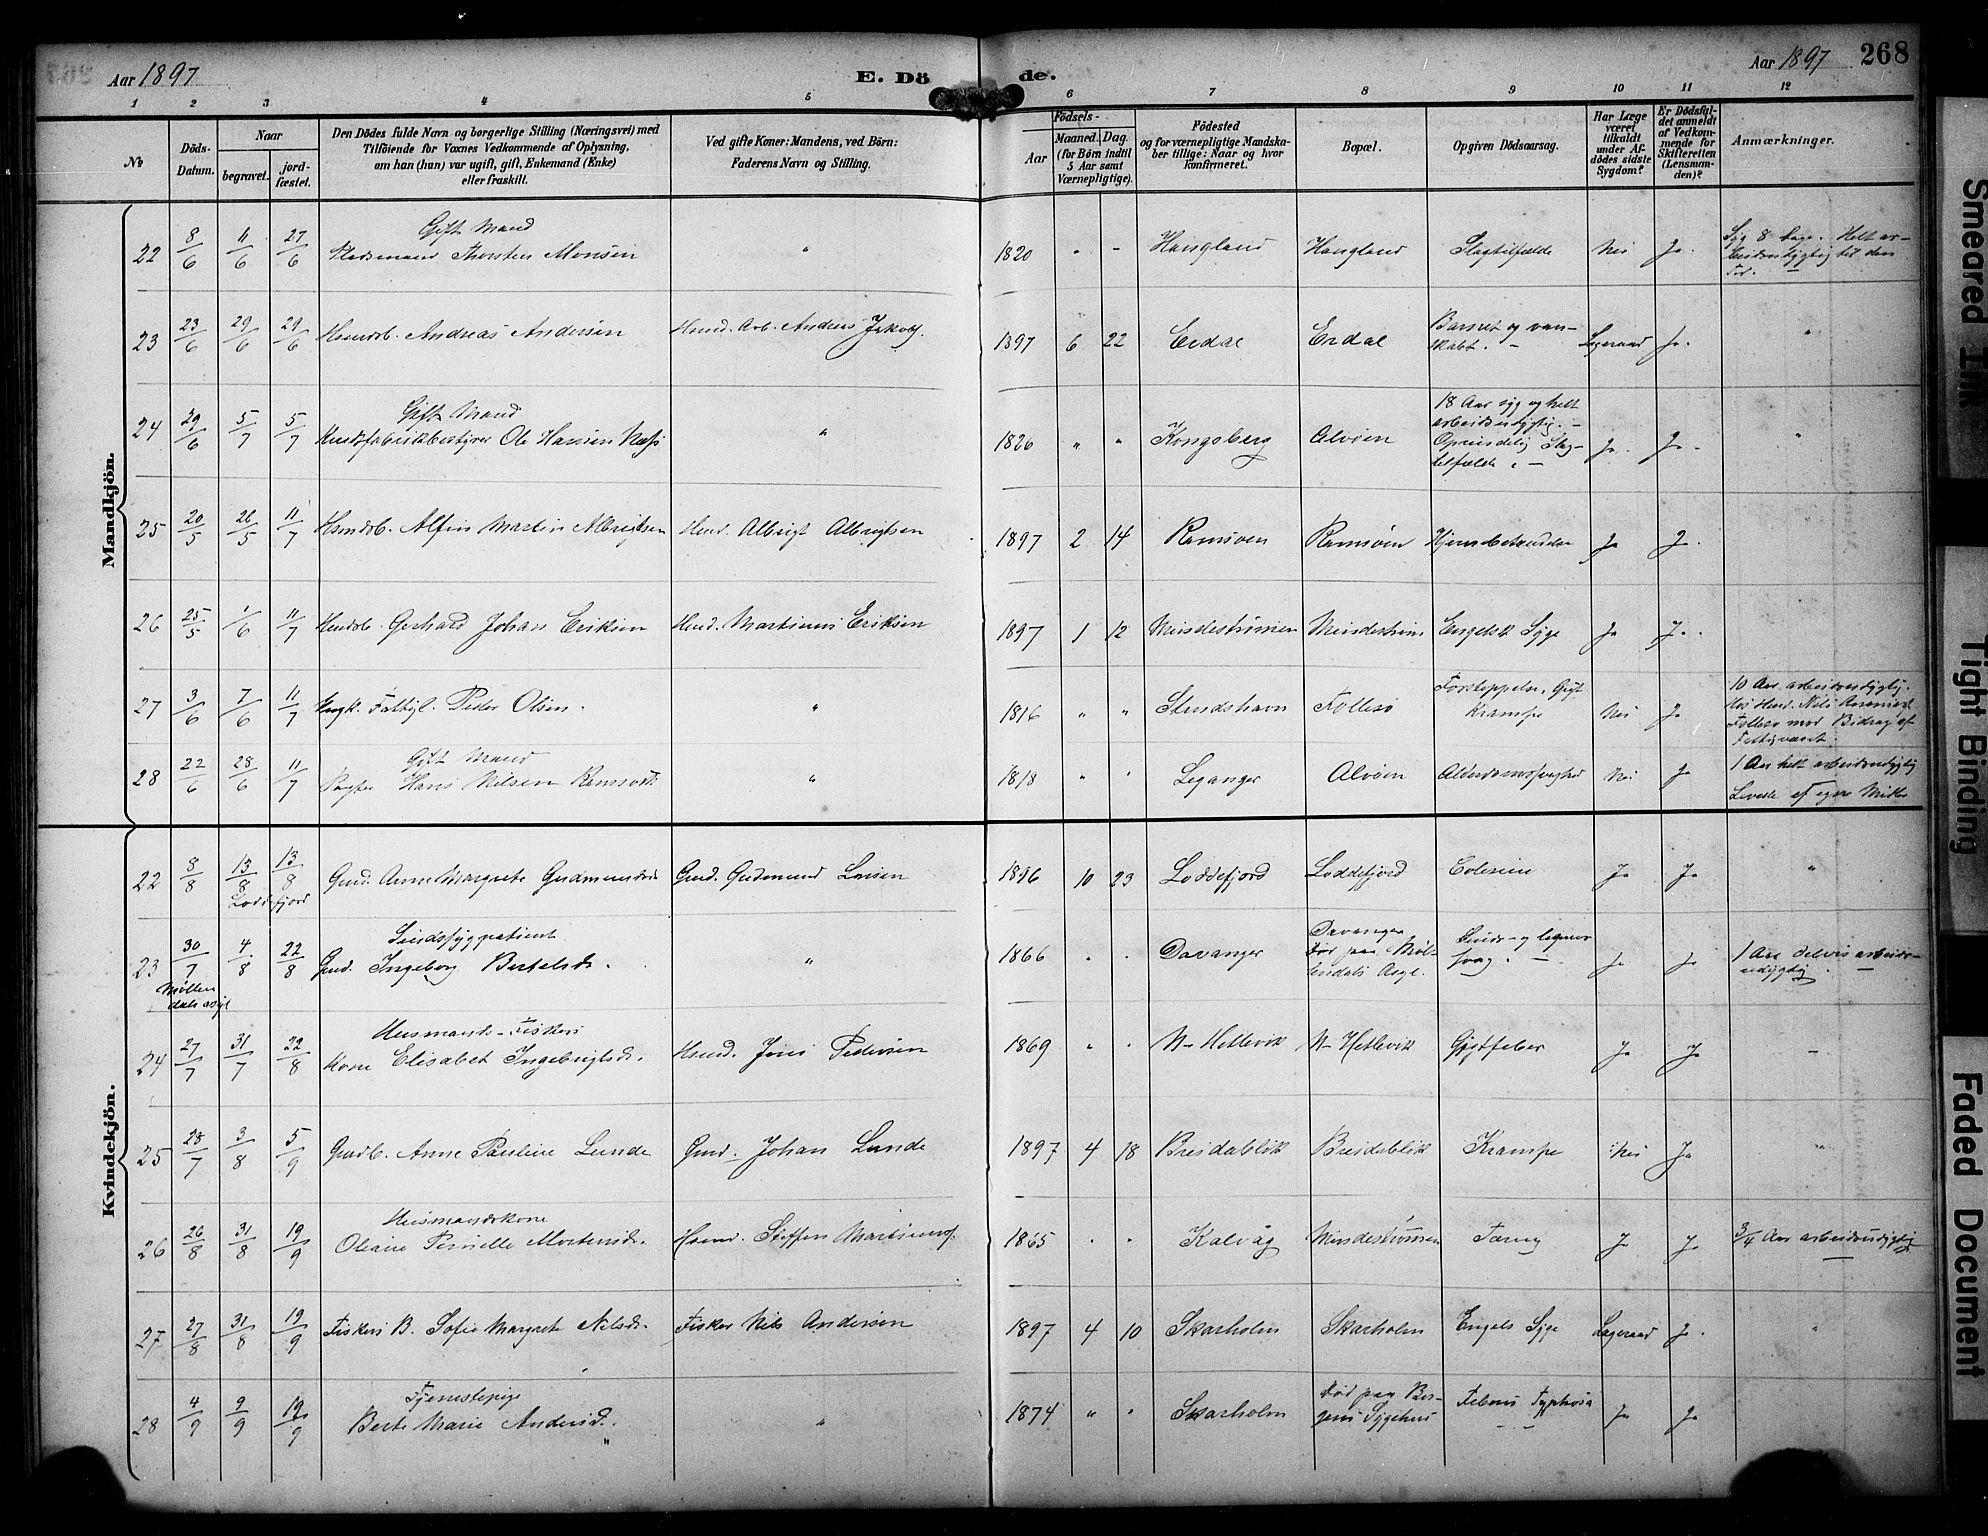 Aar 1897
E. Dö de.
Aar 1897 268
1 2 3 4 5 6 7 8 9 10 11 12
No
Döds-
Datum.
Naar
begravet.
jord-
fæstet.
Den Dödes fulde Navn og borgerlige Stilling (Næringsvei) med
Tilföiende for Voxnes Vedkommende af Oplysning,
om han (hun) var ugift, gift, Enkemand (Enke)
eller fraskilt.
Ved gifte Koner: Mandens, ved Börn:
Faderens Navn og Stilling.
Födsels-
Aar
Maaned. Dag.
(for Börn indtil
5 Aar samt
Værnepligtige).
Födested
og for værnepligtige Mandska-
ber tillige: Naar og hvor
konfirmeret.
Bopæl.
Opgiven Dödsaarsag.
Har Læge
været
tilkaldt
under Af-
dödes sidste
Sygdom?
Er Dödsfal-
det anmeldt
af Vedkom-
mende for
Skifteretten
(Lensman-
den)?
Anmærkninger.
Mandkjön.
Gift Mand
22 8/6 11/6 27/6 Thorsten Monsen " 1820 " - Haugland Haugland Slagtilfælde Nei Ja.
Syg 8 Dage. Helt ar-
beidsudygtig til den
Tid.
23 23/6 29/6 29/6 Hsmdsb. Andreas Andersen Hsmd. Arb. Andreas Jakobs. 1897 6 22 Erdal Erdal
Barnet og van-
skabt. -
Lægeraad Ja. "
Gift Mand
24 29/6 5/7 5/7 Ole Hansen Næss " 1826 " " Kongsberg Alvöen
18 Aar syg og helt
arbeidsudygtig. -
Oprindelig Slag-
tilfælde. -
Ja. Ja. "
25 20/5 26/5 11/7 Hsmdsb. Alfin Martin Albrigtsen Hsmd. Albrigt Albrigtsen 1897 2 14 Ramsöen Ramsöen Hjernebetændelse Ja Ja.
26 25/5 1/6 11/7 Hsmdsb. Gerhard Johan Eriksen Hsmd. Martinus Eriksen 1897 1 12 Mindeströmmen Mindeström Engelsk Syge Ja Ja.
27 3/6 7/6 11/7 Ungk. Fattigl. Peder Olsen. " 1816 " " Strudshavn Follesö
Forstoppelse, Gigt
Krampe
Nei Ja
10 Aar arbeidsudygtig.
Hos Hsmd. Nils
Follesö mod Bidrag af
Fattigvæset.
Gift Mand
28 22/6 28/6 11/7 Pagter Hans Nilsen " 1818 " " Leganger Alvöen Alderdomssvaghed Nei Ja
1 Aar helt arbeidsudygtig
Levede af egne Midler
Kvindekjön.
22 8/8 13/8 13/8 Gmd. Anne Margrete Gudmundsd. Gmd. Gudmund Larsen 1896 10 23 Loddefjord Loddefjord Colerine Ja Ja "
Loddefjord
Sindssygpatient
23 30/7 4/8 22/8 Gmd. Ingeborg Bertelsd. " 1866 " " Davanger
Davanger
Död paa Möl-
lendals Asyl.
Sinds- og legems-
svag. -
Ja Ja
1 Aar delvis arbeids-
udygtig.
Möllen
dals asyl
Husmands-Fiskers
24 27/7 31/7 22/8 Kone Elisabet Ingebrigtsd. Hsmd. Jens Pedersen 1869 " " N. Hetlevik N. Hetlevik Gigtfeber Ja Ja -
25 28/7 3/8 5/9 Gmdb. Anne Pauline Lunde Gmd. Johan Lunde 1897 4 18 Breidablik Breidablik Krampe Nei Ja "
Husmandskone
26 26/8 31/8 19/9 Oliane Pernille Mortensd. Hsmd. Steffen Martinuss. 1865 " " Kalvåg Mindeströmmen Tæring Ja Ja 3/4 Aar arbeidsudygtig
27 27/8 31/8 19/9 Fiskers B. Sofie Margret Nilsd. Fisker Nils Andersen 1897 4 10 Skarholm Skarholm Engels Syge Lægeraad Ja. "
Tjenestepige
28 4/9 9/9 19/9 Berte Marie Andersd. " 1874 " " Skarholm
Död paa Ber-
gens Sygehus
Febris Typhosa
Ja Ja
Smeared Ink
Tight Binding
Faded Document